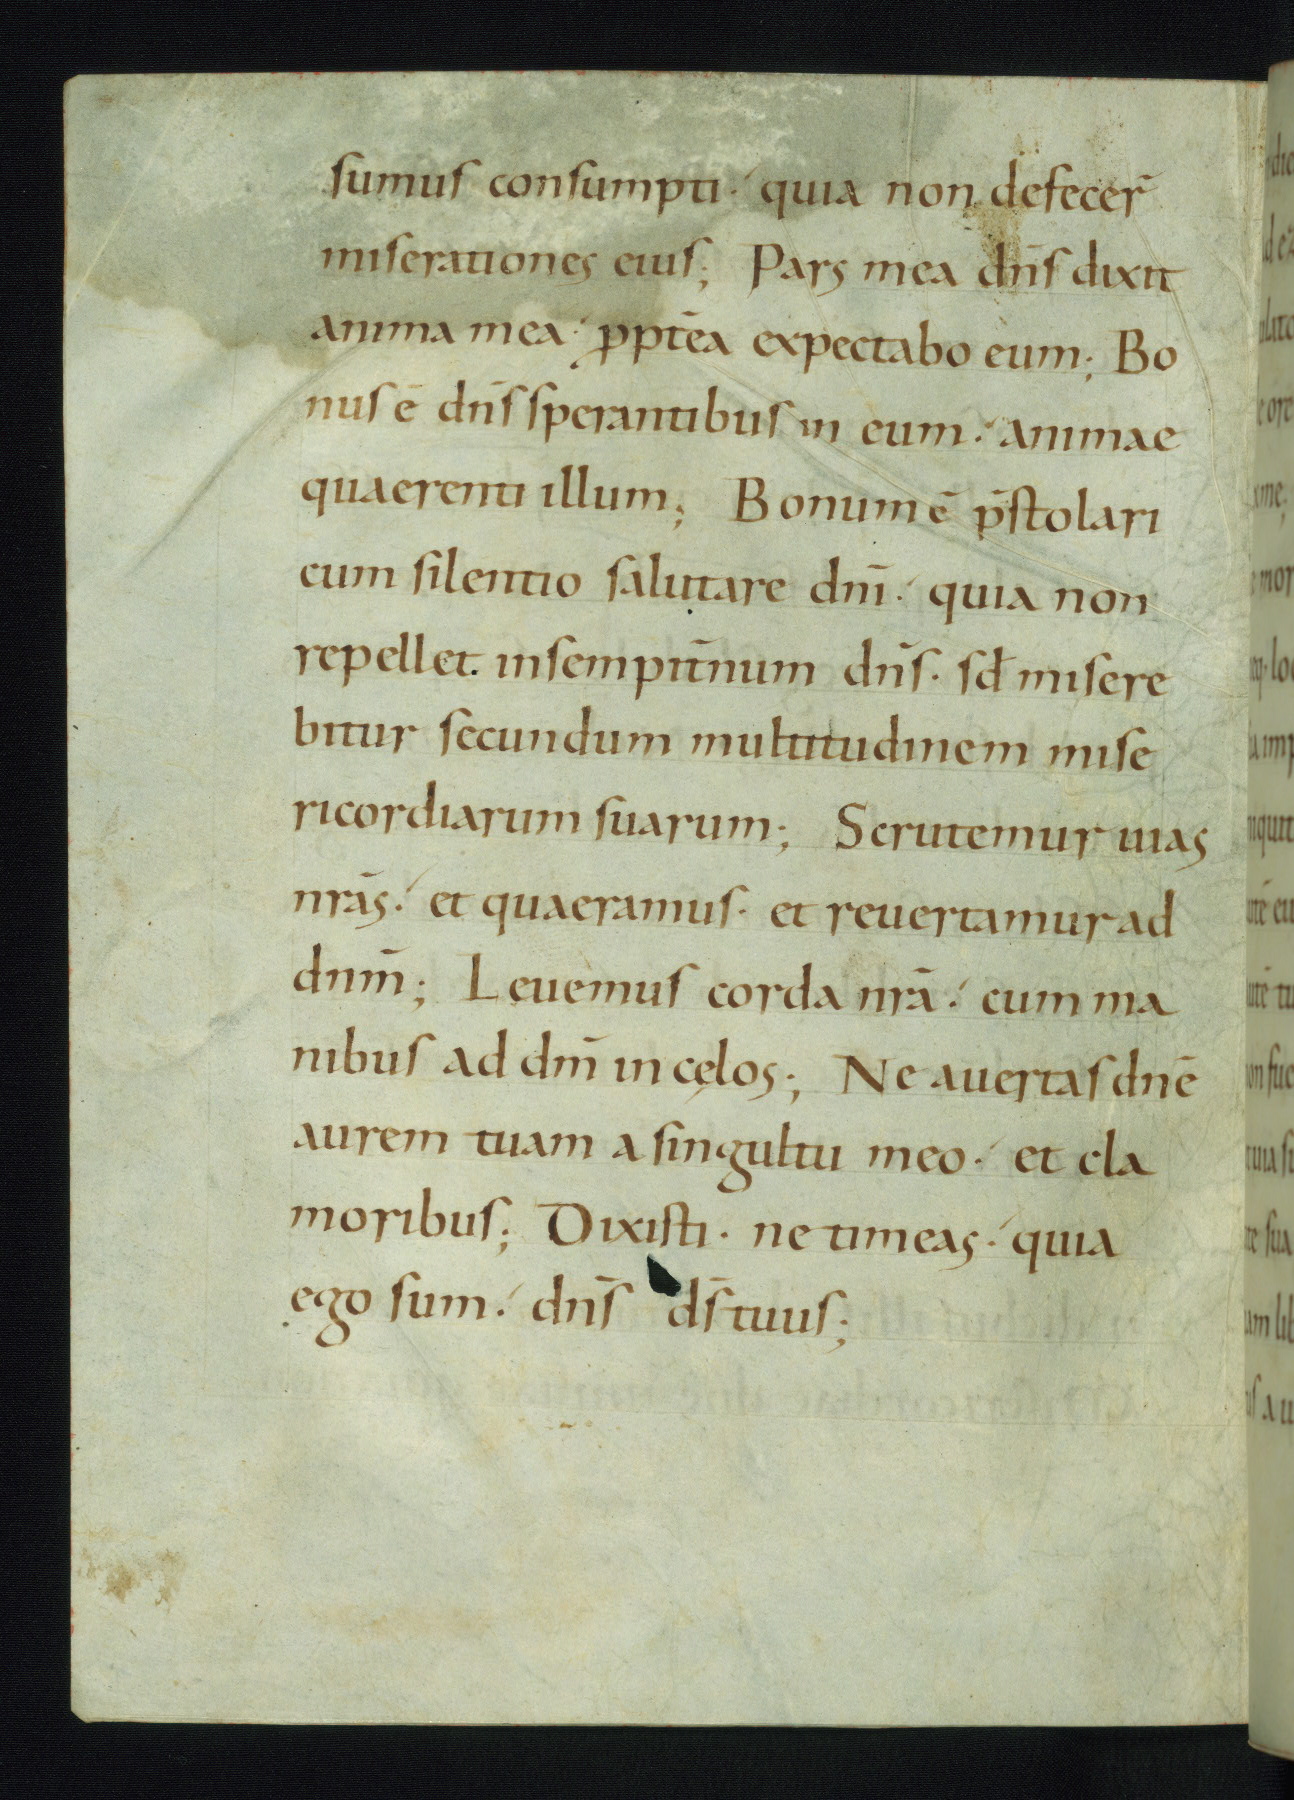 sumus consumpti· quia non defecer̄
miserationes eius; Pars mea dn̄s dixit
anima mea· ꝓpt̄ea expectabo eum; Bo
nus ē dn̄s sperantibus in eum· animae
quaerenti illum; Bonum ē p̄stolari
cum silentio salutare dnī· quia non
repellet insempit̄num dn̄s· sđ misere
bitur secundum multitudinem mise
ricordiarum suarum; Scrutemur uias
nrās· et quaeramus· et reuertamur ad
dnm̄; Leuemus corda nrā· cum ma
nibus ad dm̄ in cęlos; Ne auertas dnē
aurem tuam a singultu meo· et cla
moribus; Dixisti· ne timeas· quia
ego sum· dn̄s ds̄ tuus;